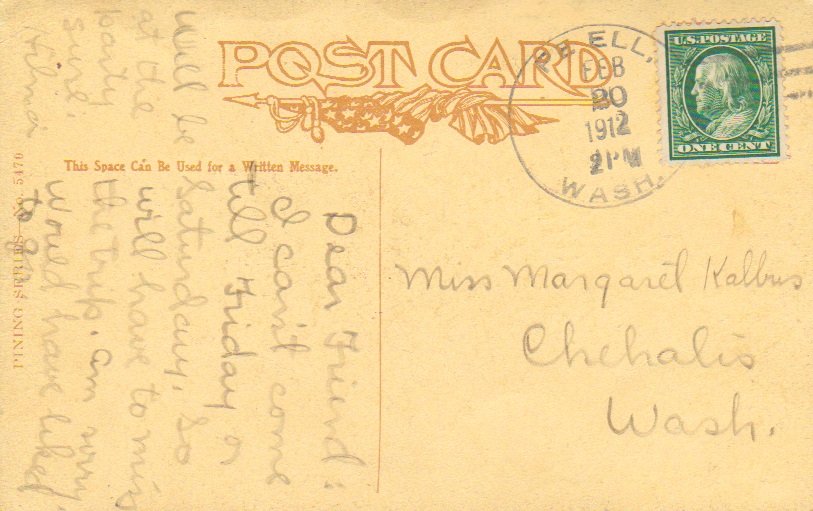 POST CARD
This Space Can Be Used for a Written Message.
PE ELL,
FEB
20
1912
2 PM
WASH.
U.S. POSTAGE
ONE CENT
Dear Friend:
I can't come
till Friday or
Saturday, so
will have to miss
the trip. Am sorry.
Would have liked
to go
Will be
at the
party
sure.
Hilma
Miss Margaret Kalbus
Chehalis
Wash.
PINING SERIES—No. 5470